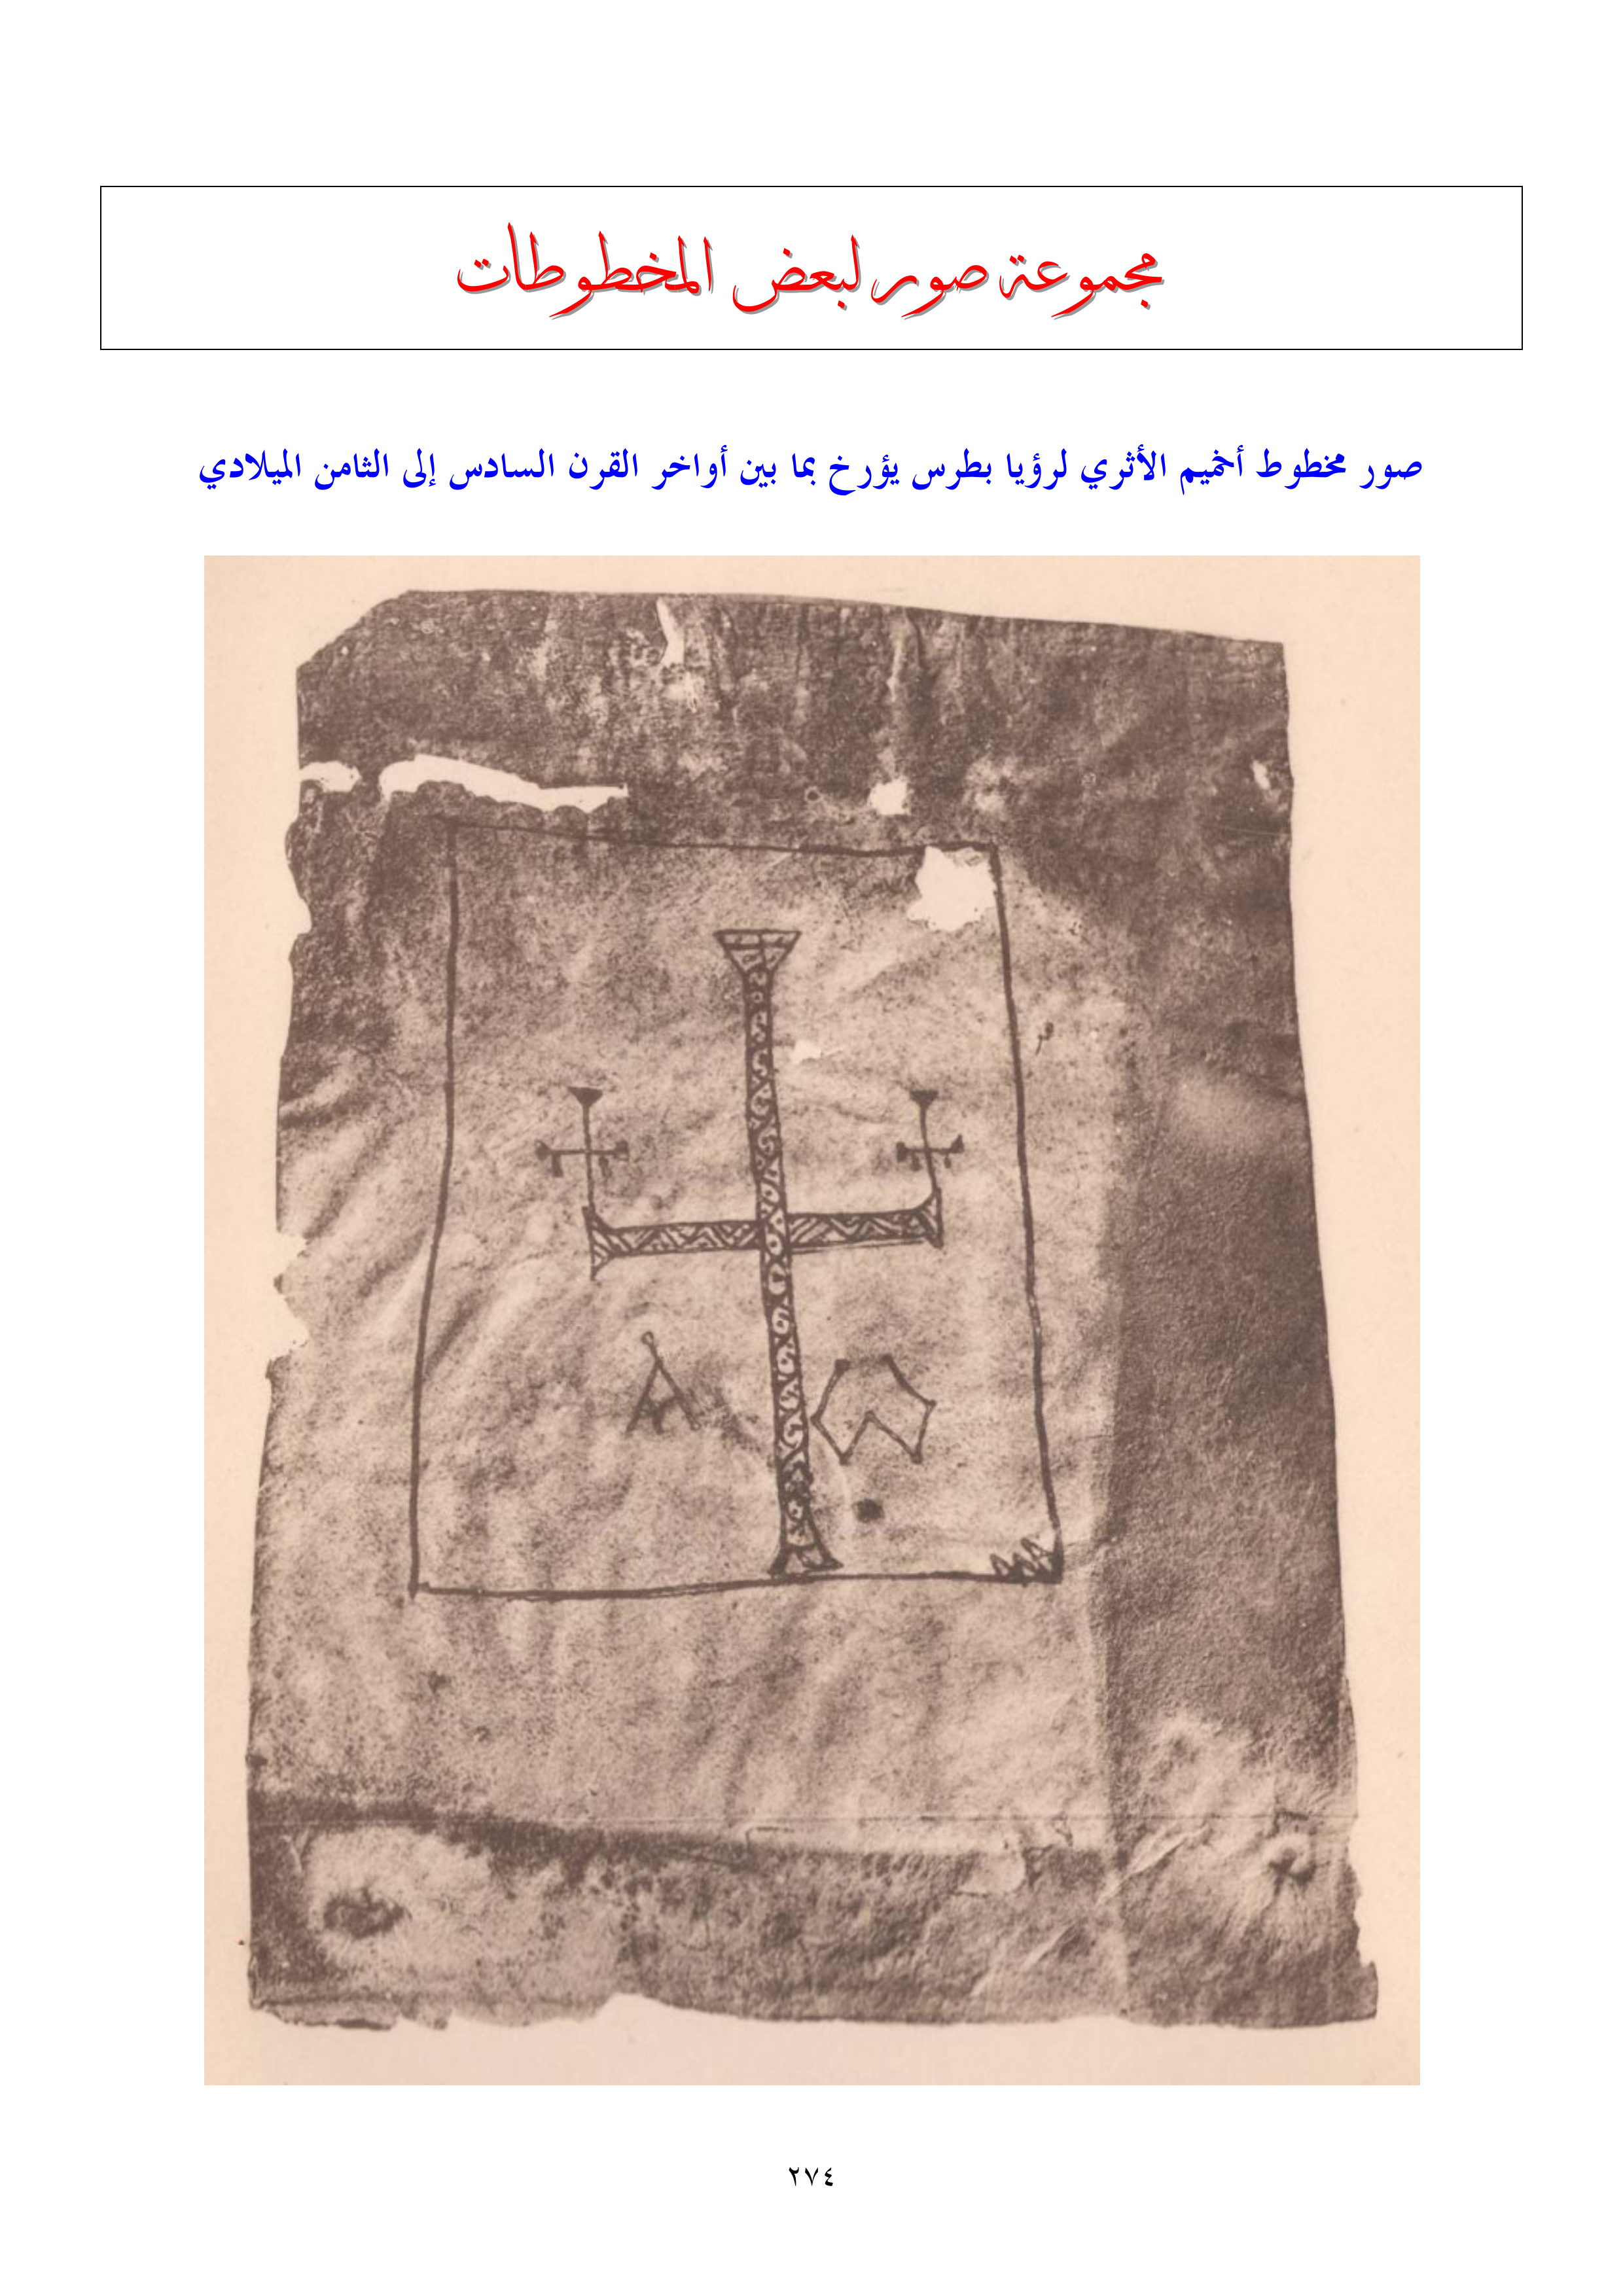 مجموعة صور لبعض المخطوطات
صور مخطوط أخميم الأثري لرؤيا بطرس يؤرخ بما بين أواخر القرن السادس إلى الثامن الميلادي
Α Ω
٢٧٤